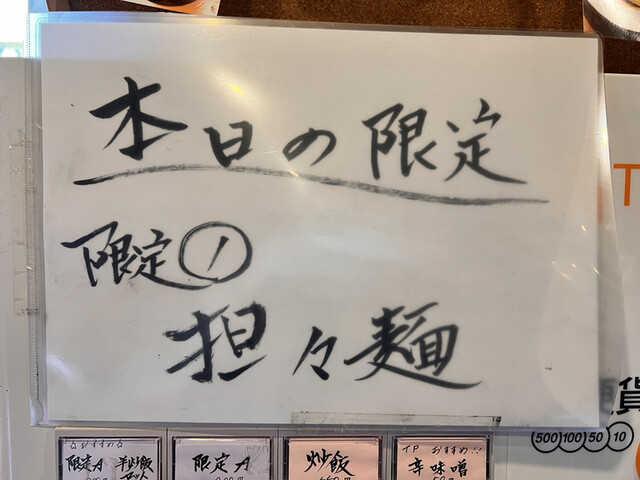 本日の限定
限定①
担々麺
T
貨
500 100 50 10
☆おすすめ☆
限定A 半炒飯セット
限定A
炒飯
T.P おすすめ!!
辛味噌